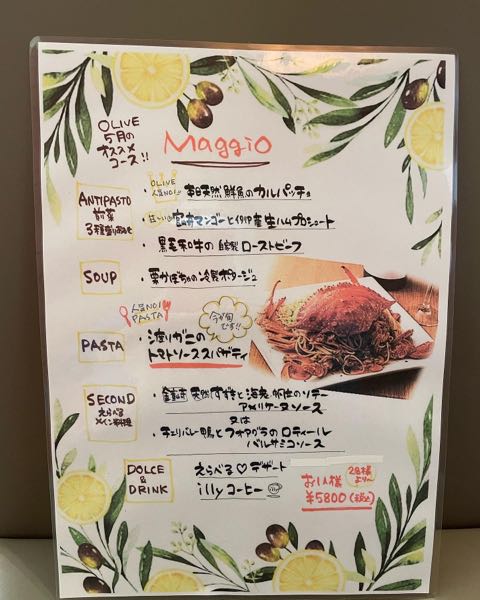 OLIVE
5月の
オススメ
コース!!
Maggio
ANTIPASTO
前菜
3種盛りあわせ
OLIVE
人気NO1
・本日天然鮮魚のカルパッチョ
・宮崎マンゴーとイタリア産生ハムプロシュート
・黒毛和牛の自家製ローストビーフ
SOUP
・栗かぼちゃの冷製ポタージュ
人気NO1
PASTA
今が旬
です!!
PASTA
・渡りガニの
トマトソーススパゲティ
SECOND
えらべる
メイン料理
・天然すずきと海老、帆立のソテー
アメリケーヌソース
又は
・チェリバレー鴨とフォアグラのロティール
バルサミコソース
DOLCE
&
DRINK
えらべる♡デザート
illyコーヒー
2名様
より〜
お1人様
¥5800(税込)